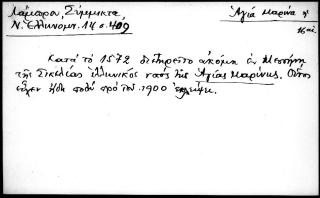 Λάμπρου, Σύμμικτα
Ν. Ελληνομν. 14 σ. 409
Αγία Μαρίνα
16 αι.
Κατά τό 1572 διετηρεῖτο ἀκόμη ἐν Μεσσήνῃ
τῆς Σικελίας ἑλληνικός ναός τῆς Ἁγίας Μαρίνης. Οὗτος
εἶχεν ἤδη πολύ πρό τοῦ 1900 ἐκλείψει.